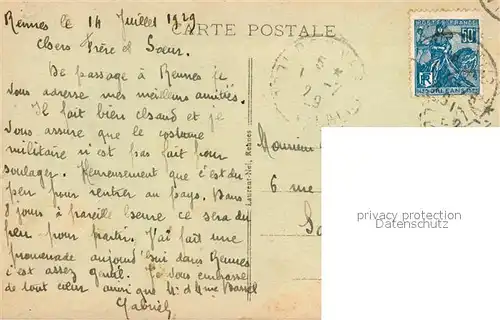 Rennes le 14 Juillet 1929
CARTE POSTALE
Chers Frère et Sœur
De passage à Rennes je
vous adresse mes meilleurs amitiés.
Il fait bien chaud et je
vous assure que le costume
militaire n'est pas fait pour
soulager. Heureusement que c'est du
peu pour rentrer au pays. Dans
8 jours à pareille heure ce sera du
peu pour partir. J'ai fait une
promenade aujourd'hui dans Rennes
c'est assez génial. Je vous embrasse
de tout cœur ainsi que Mr d Mme
Gabriel
Laurent-Nel, Rennes
POSTES FRANCE
50c
RF
ORLEANS
Monsieur
6 rue
privacy protection
Datenschutz